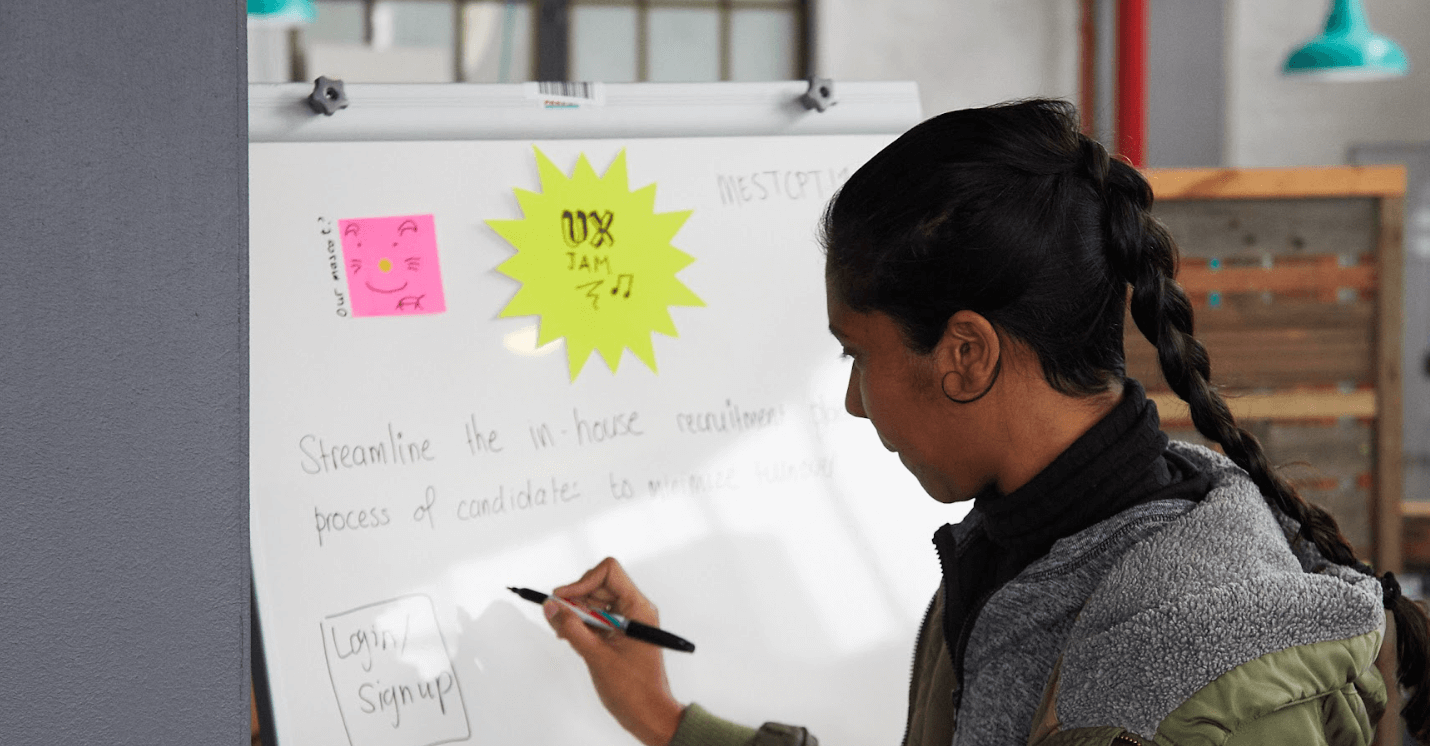 our mascot?
UX
JAM
Streamline the in-house recruitment
process of candidates to minimize
Login/
Signup